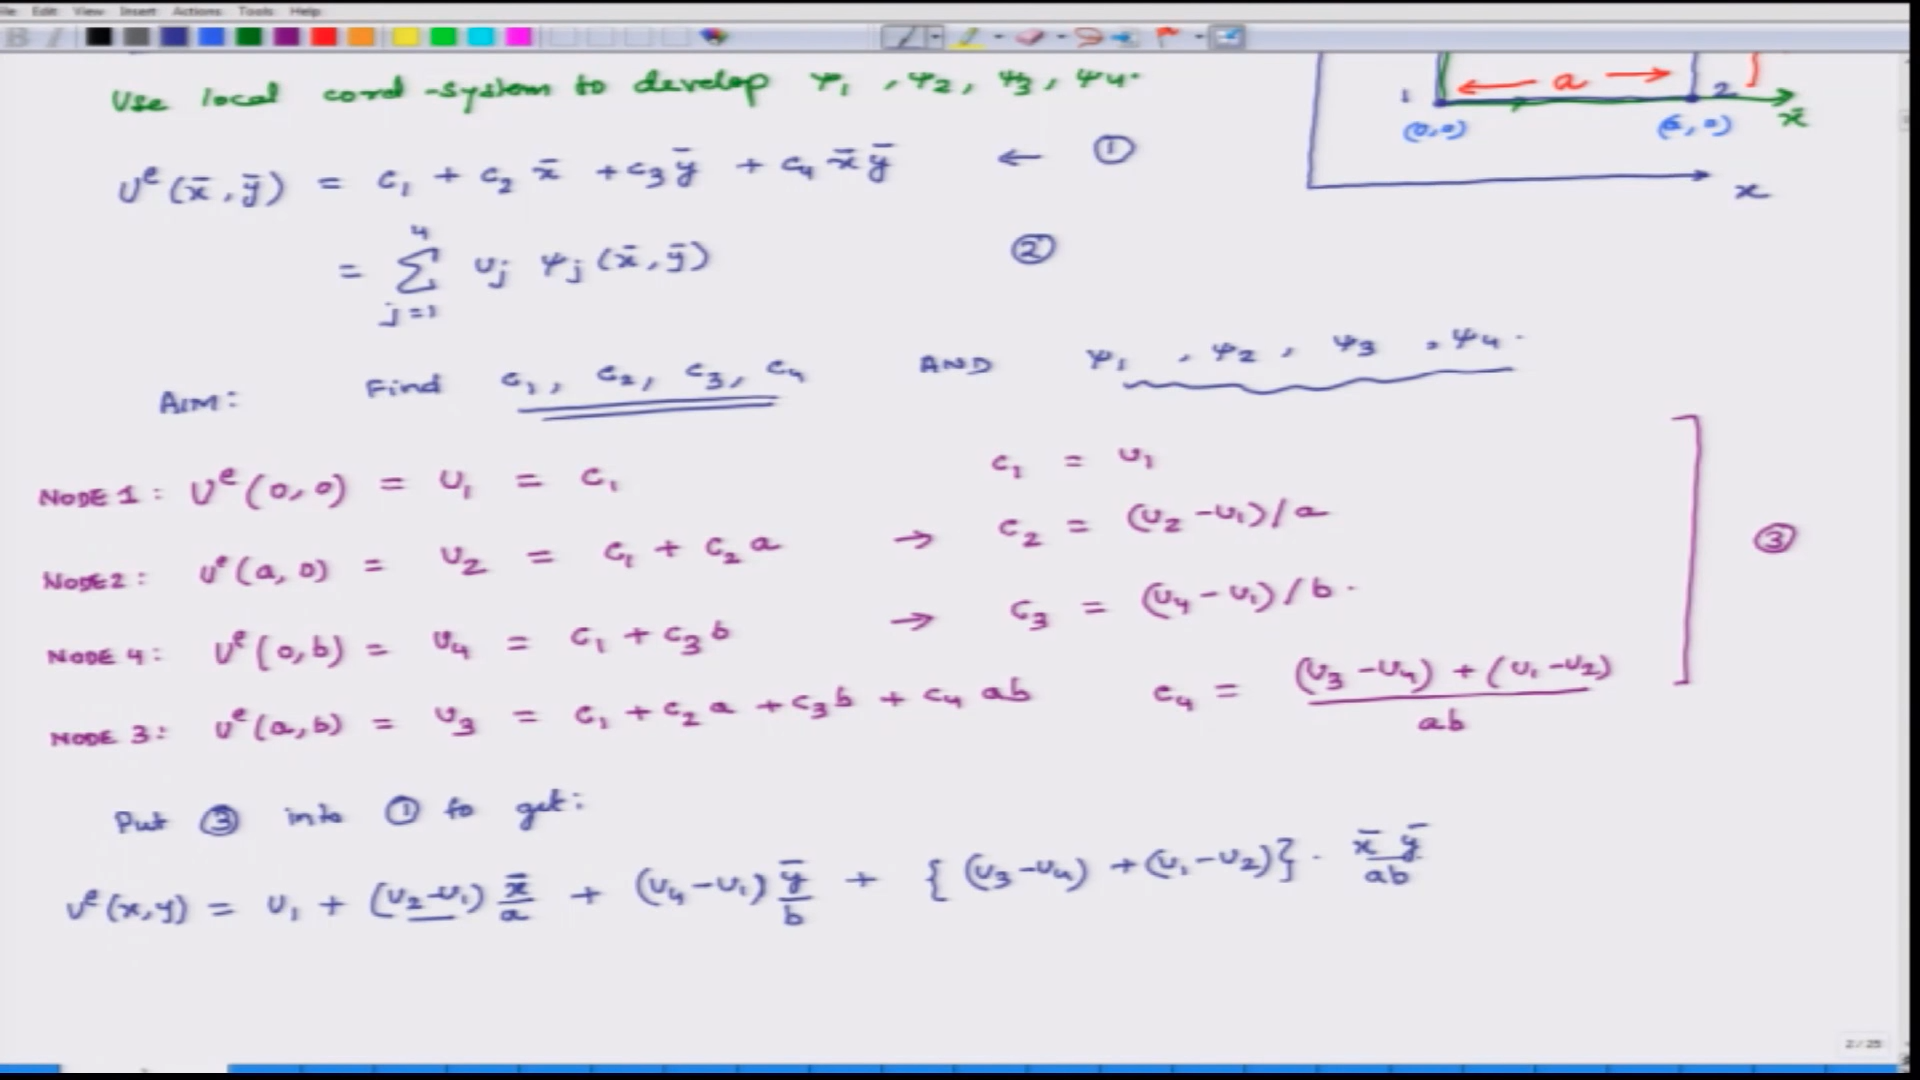 File Edit View Insert Actions Tools Help
B I
Use local cord-system to develop ψ₁, ψ₂, ψ₃, ψ₄.
a
1 2 x̄
(0,0) (a,0)
x
Uᵉ(x̄,ȳ) = c₁ + c₂ x̄ + c₃ȳ + c₄ x̄ȳ ← ①
= Σ uⱼ ψⱼ(x̄,ȳ) ②
4
j=1
AIM: Find c₁, c₂, c₃, c₄ AND ψ₁, ψ₂, ψ₃, ψ₄.
NODE 1: Uᵉ(0,0) = u₁ = c₁ c₁ = u₁
NODE 2: uᵉ(a,0) = u₂ = c₁ + c₂a → c₂ = (u₂-u₁)/a
③
NODE 4: Uᵉ(0,b) = u₄ = c₁ + c₃b → c₃ = (u₄-u₁)/b.
NODE 3: uᵉ(a,b) = u₃ = c₁ + c₂a + c₃b + c₄ab c₄ = (u₃-u₄) + (u₁-u₂)
ab
Put ③ into ① to get:
uᵉ(x,y) = u₁ + (u₂-u₁) x̄/a + (u₄-u₁) ȳ/b + { (u₃-u₄) + (u₁-u₂)} . x̄ ȳ/ab
2 / 25